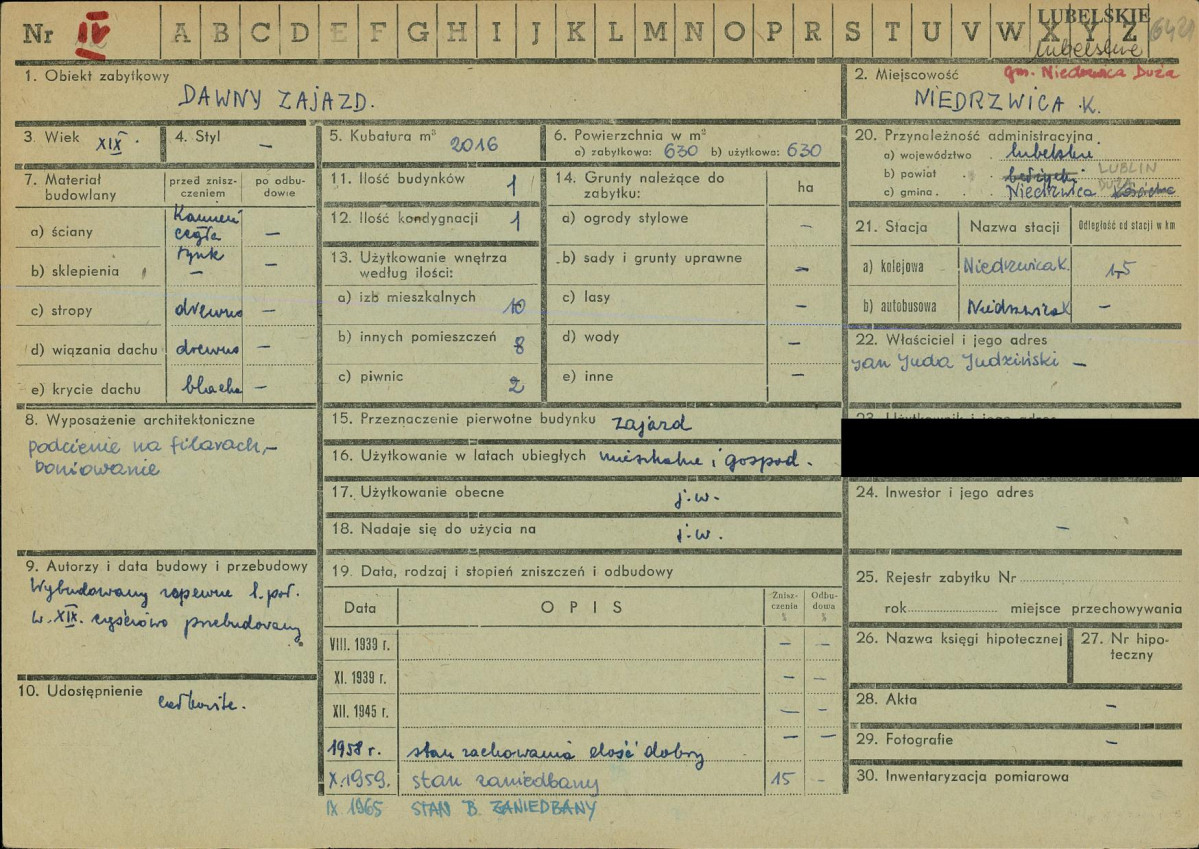 Nr IV A B C D E F G H I J K L M N O P R S T U V W X Y Z
LUBELSKIE
lubelskie
6421
1. Obiekt zabytkowy
DAWNY ZAJAZD.
2. Miejscowość
gm. Niedrzwica Duża
NIEDRZWICA K.
3. Wiek XIX.
4. Styl –
5. Kubatura m³ 2016
6. Powierzchnia w m²
a) zabytkowa: 630 b) użytkowa: 630
20. Przynależność administracyjna
a) województwo lubelskie
b) powiat LUBLIN
c) gmina Niedrzwica DUŻA Kościelna
7. Materiał budowlany
przed zniszczeniem
po odbudowie
a) ściany
Kamień cegła –
tynk
b) sklepienia – –
c) stropy drewno –
d) wiązania dachu drewno –
e) krycie dachu blacha –
11. Ilość budynków 1
12. Ilość kondygnacji 1
13. Użytkowanie wnętrza
według ilości:
a) izb mieszkalnych 10
b) innych pomieszczeń 8
c) piwnic 2
14. Grunty należące do
zabytku:
ha
a) ogrody stylowe –
b) sady i grunty uprawne –
c) lasy –
d) wody –
e) inne –
21. Stacja Nazwa stacji Odległość od stacji w km
a) kolejowa Niedrzwica K. 1,5
b) autobusowa Niedrzwica K –
22. Właściciel i jego adres
Jan Juda Judziński –
8. Wyposażenie architektoniczne
podcienie na filarach, –
boniowanie
15. Przeznaczenie pierwotne budynku zajazd
16. Użytkowanie w latach ubiegłych mieszkalne i gospod.
17. Użytkowanie obecne j.w.
18. Nadaje się do użycia na j.w.
23. Użytkownik i jego adres
24. Inwestor i jego adres
–
9. Autorzy i data budowy i przebudowy
Wybudowany zapewne 1. poł.
w. XIX. częściowo przebudowany.
10. Udostępnienie
całkowite.
19. Data, rodzaj i stopień zniszczeń i odbudowy
Data OPIS Zniszczenia % Odbudowa %
VIII. 1939 r. – –
XI. 1939 r. – –
XII. 1945 r. – –
1958 r. stan zachowania dość dobry – –
X.1959. stan zaniedbany 15 –
IX 1965 STAN B. ZANIEDBANY
25. Rejestr zabytku Nr
rok miejsce przechowywania
26. Nazwa księgi hipotecznej
27. Nr hipoteczny
28. Akta –
29. Fotografie –
30. Inwentaryzacja pomiarowa